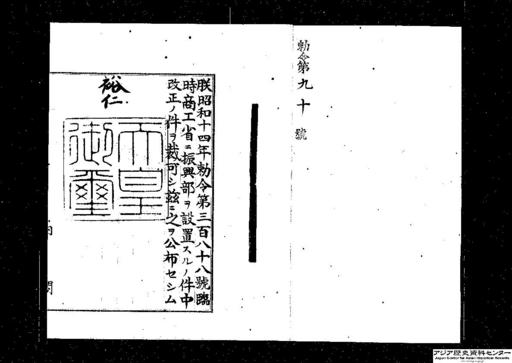 勅令第九十號
朕昭和十四年勅令第三百八十八號臨
時商工省ニ振興部ヲ設置スルノ件中
改正ノ件ヲ裁可シ茲ニ之ヲ公布セシム
裕仁
天皇
御璽
內閣
アジア歴史資料センター
Japan Center for Asian Historical Records